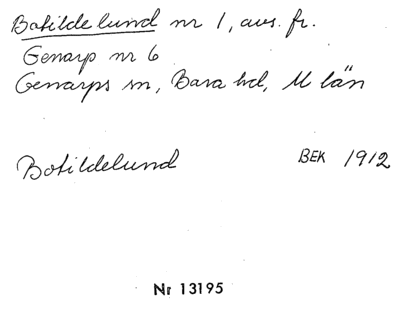 Botildelund nr 1, avs. fr.
Genarp nr 6
Genarps sn, Bara hd, M län
Botildelund BEK 1912
Nr 13195